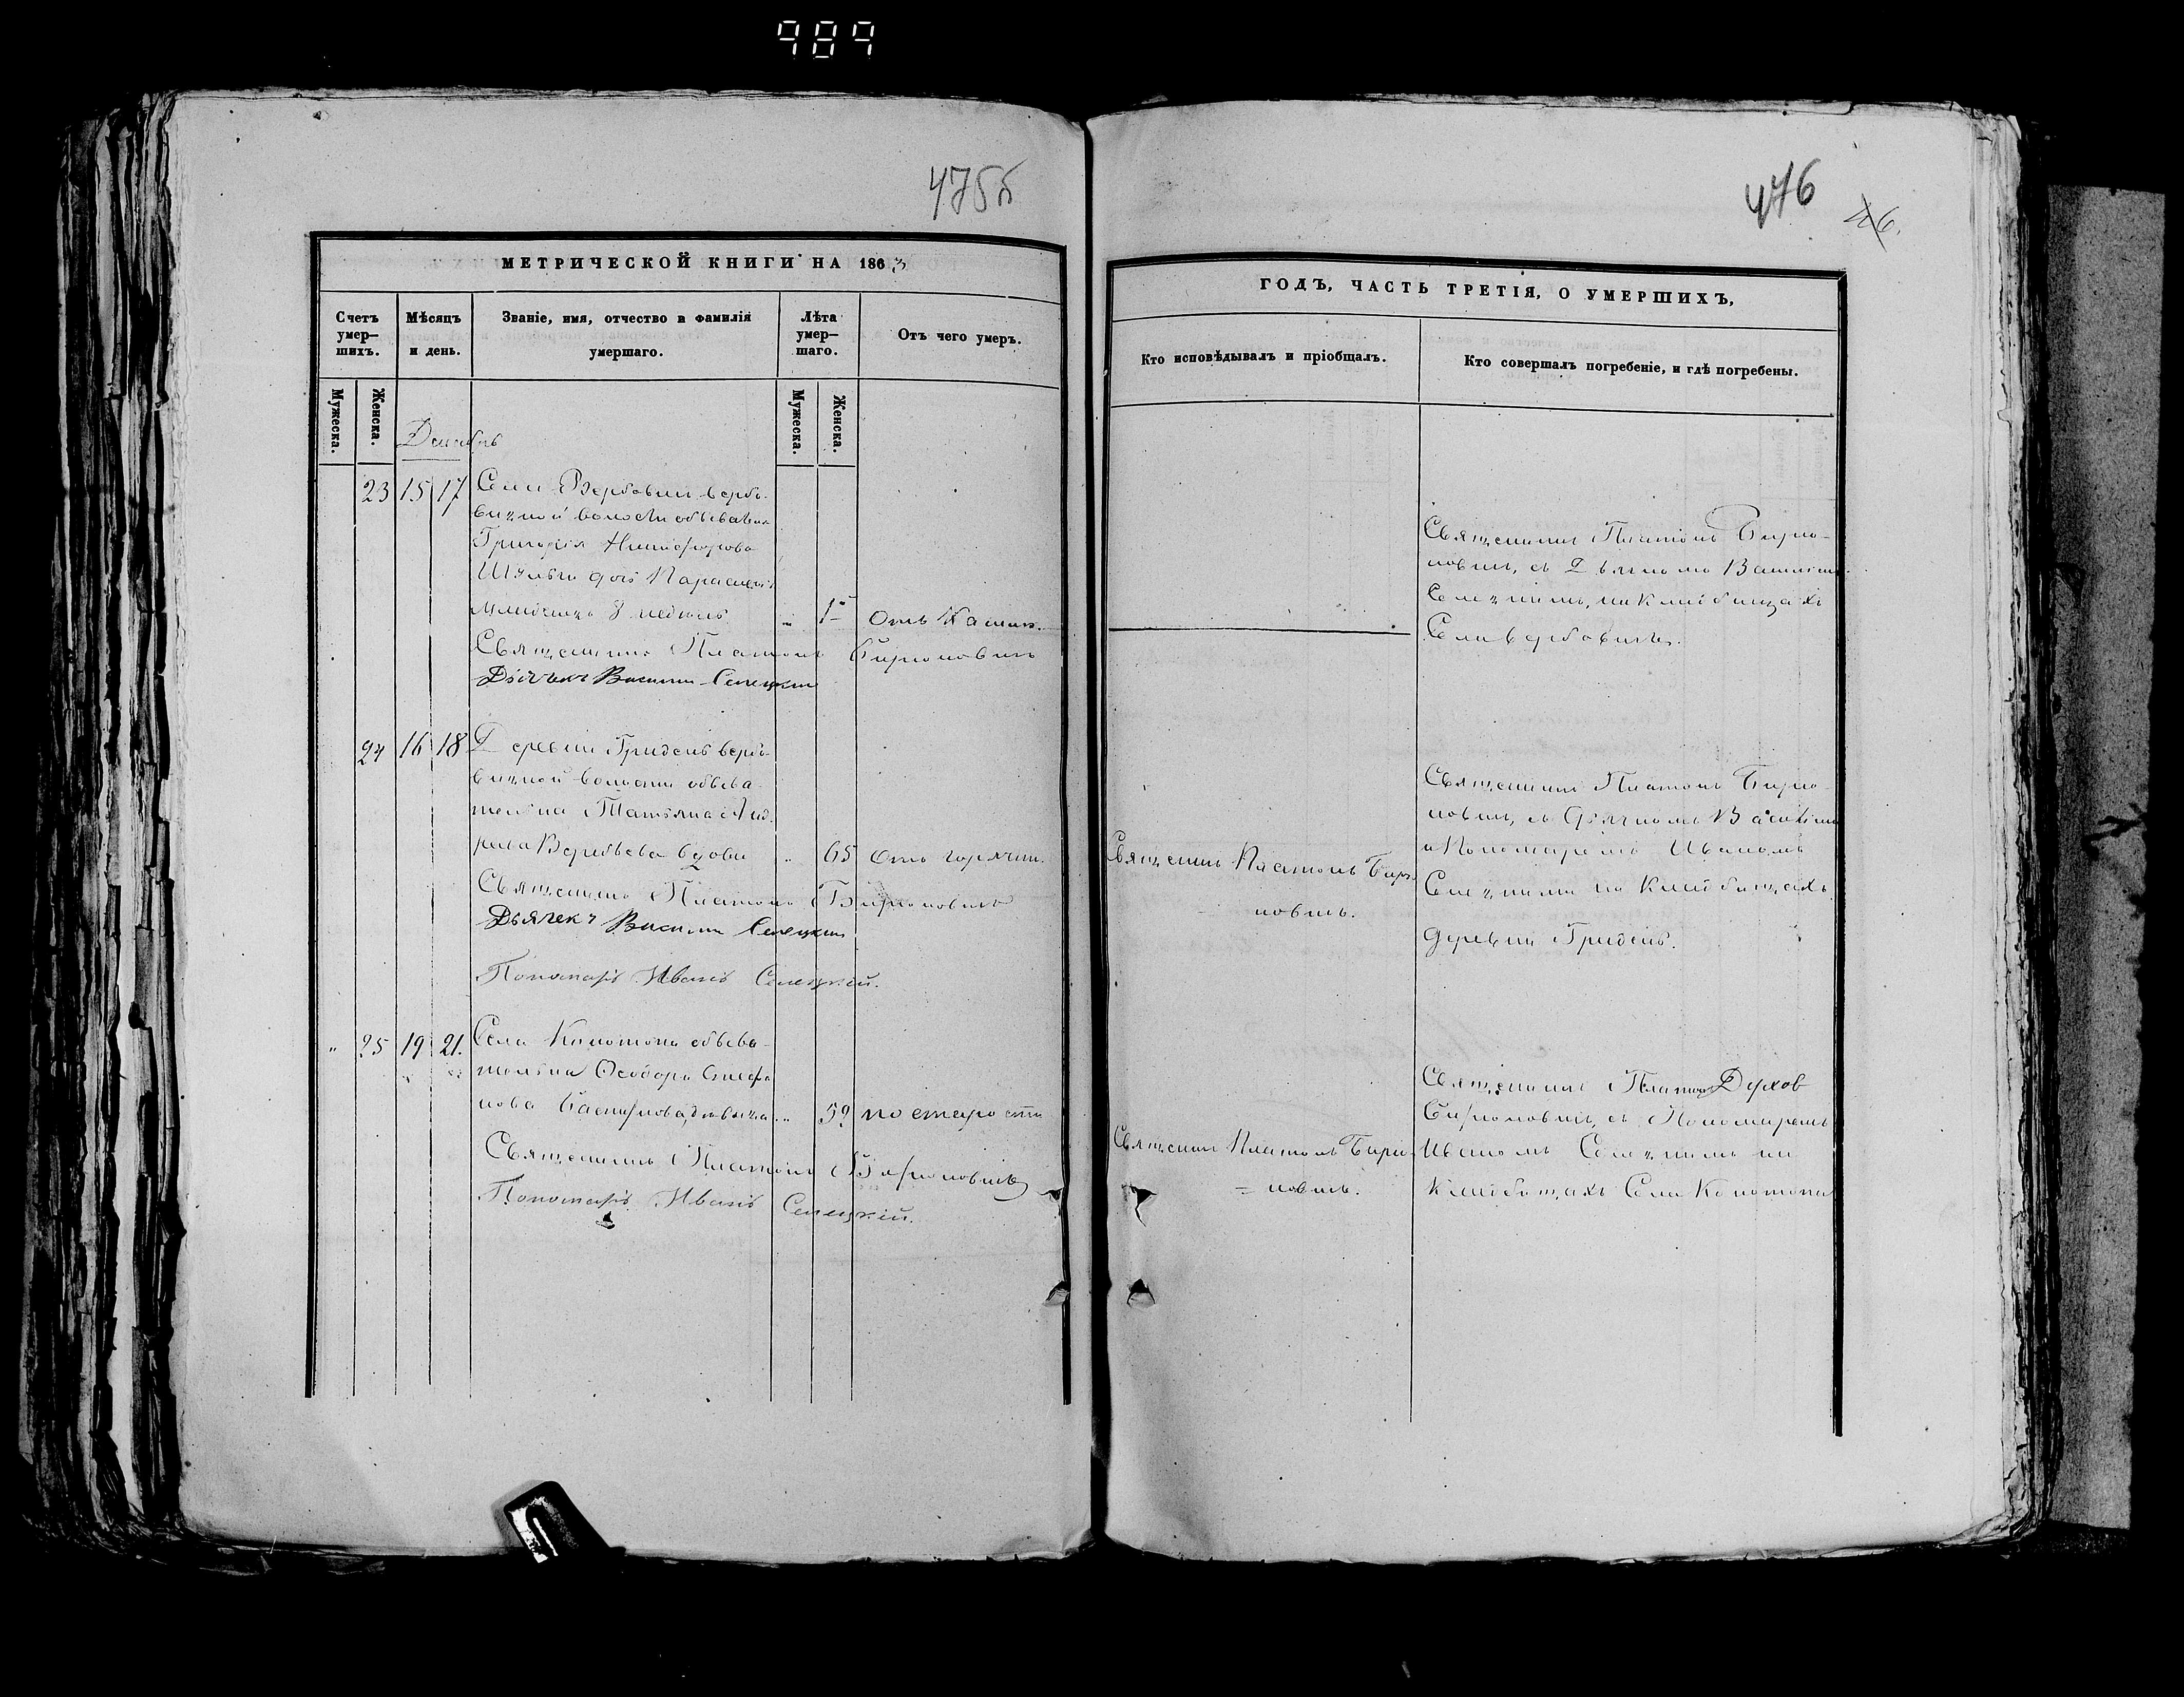 989
475б
МЕТРИЧЕСКОЙ КНИГИ НА 1863
Счетъ умер—шихъ.
Мѣсяцъ и день.
Званіе, имя, отчество и фамилія умершаго.
Лѣта умер—шаго.
Отъ чего умеръ.
Мужеска.
Женска.
Мужеска.
Женска.
Декабрь
23 15 17 Села Вербовичъ вербо-
вичкой волости обывателя
Григорія Никифорова
дочь Параскева
младенецъ 8 недѣль „ 1 Отъ Кашля.
Священникъ Платонъ Бирюковичъ
Дьячекъ Василий Селецкий
24 16 18 Деревни Гридень вербо-
вичкой волости обыва-
тельна Татьяна Анд-
реева вдова „ 65 Отъ горячки.
Священникъ Платонъ Бирюковичъ
Дьячекъ Василий Селецкий
Пономарь Иванъ Селецкій.
„ 25 19 21. Села Конотопа обыва-
тельна Ѳеодора Стефа-
нова дѣвица „ 59 по старости
Священникъ Платонъ Бирюковичъ
Пономарь Иванъ Селецкій.
476
46.
ГОДЪ, ЧАСТЬ ТРЕТІЯ, О УМЕРШИХЪ,
Кто исповѣдывалъ и пріобщалъ.
Кто совершалъ погребеніе, и гдѣ погребены.
Священникъ Платонъ Бирю-
ковичъ, съ Дьячкомъ Василіемъ
Селецкимъ, на кладбищахъ
Села Вербовичъ.
Священникъ Платонъ Бирю-
ковичъ.
Священникъ Платонъ Бирю-
ковичъ, съ Дьячкомъ Василіемъ
и Пономаремъ Иваномъ
Селецкими на кладбищахъ
деревни Гридень.
Священникъ Платонъ Бирю-
= ковичъ.
Священникъ Платонъ
Бирюковичъ, съ Пономаремъ
Иваномъ Селецкимъ на
кладбищахъ Села Конотопа